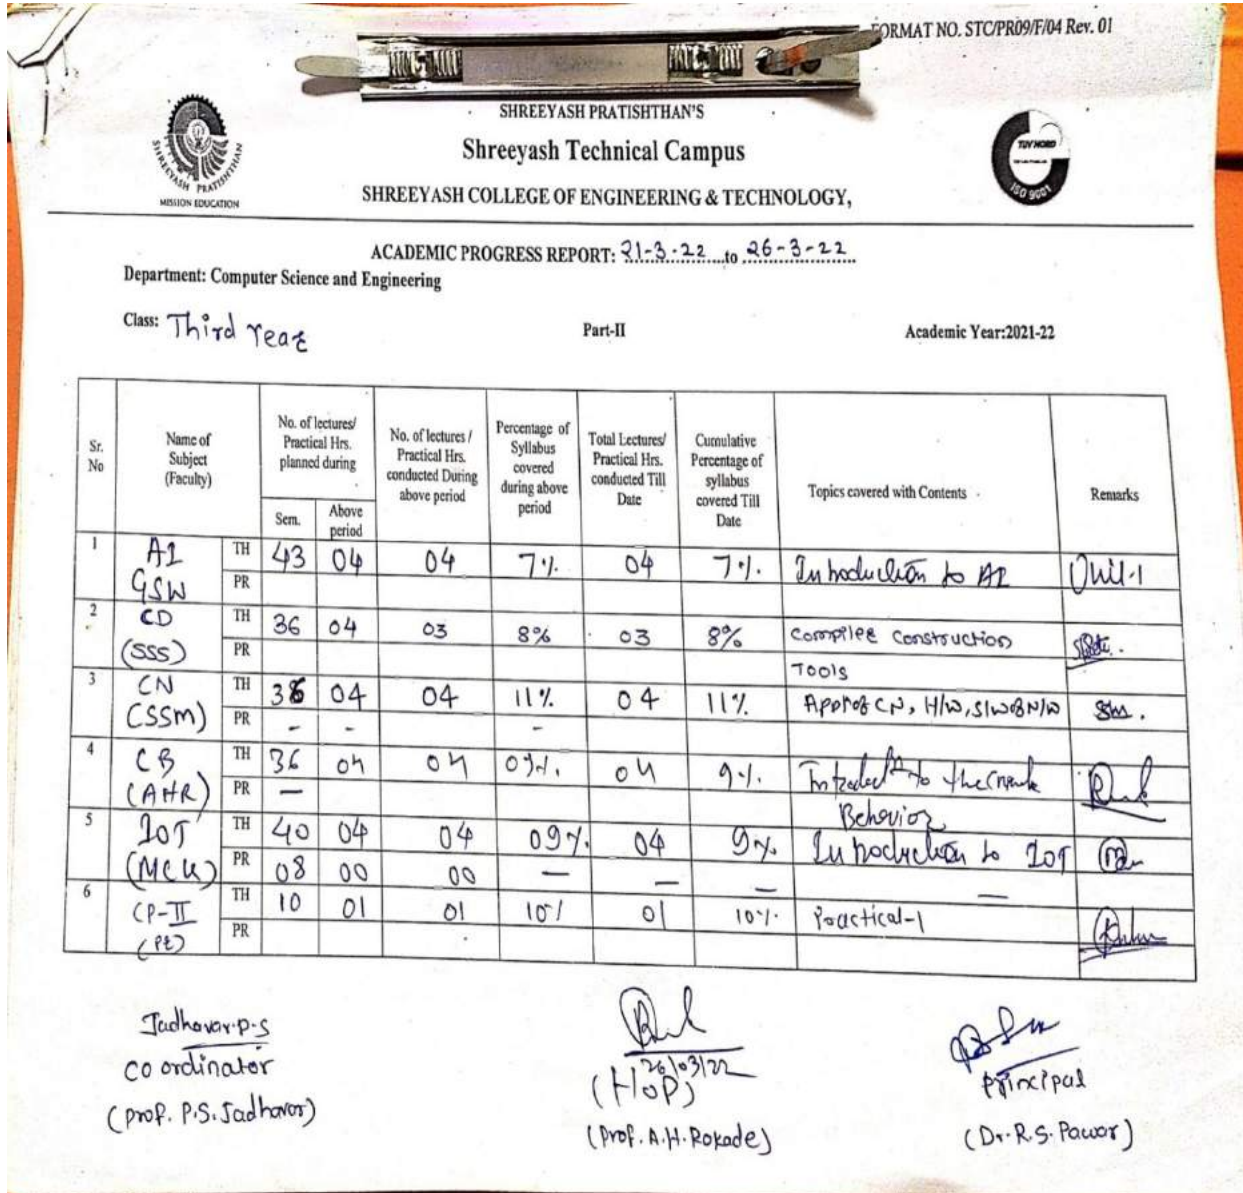 FORMAT NO. STC/PR09/F/04 Rev. 01
SHREEYASH PRATISHTHAN'S
Shreeyash Technical Campus
SHREEYASH COLLEGE OF ENGINEERING & TECHNOLOGY,
SHREEYASH PRATISHTHAN
MISSION EDUCATION
TUV NORD
ISO 9001
ACADEMIC PROGRESS REPORT: 21-3-22 to 26-3-22
Department: Computer Science and Engineering
Class: Third Year Part-II Academic Year:2021-22
Sr. No
Name of Subject (Faculty)
No. of lectures/ Practical Hrs. planned during
Sem. Above period
No. of lectures / Practical Hrs. conducted During above period
Percentage of Syllabus covered during above period
Total Lectures/ Practical Hrs. conducted Till Date
Cumulative Percentage of syllabus covered Till Date
Topics covered with Contents
Remarks
1 AI TH 43 04 04 7% 04 7% Introduction to AI Unit-1
GSW PR
2 CD TH 36 04 03 8% 03 8% Compiler Construction
(SSS) PR Tools
3 CN TH 36 04 04 11% 04 11% App of CN, H/W, S/W of N/W SSm.
(SSm) PR - - -
4 CB TH 36 04 04 09%. 04 9%. Introduct^n to the
(AHR) PR — Behavior
5 IOT TH 40 04 04 09% 04 9% Introduction to IOT
(MCK) PR 08 00 00 — — — —
6 CP-II TH 10 01 01 10% 01 10%. Practical-1
PR
Jadhavar.P.S
coordinator
(prof. P.S. Jadhavar)
26/03/22
(HOP)
(Prof. A.H. Rokade)
principal
(Dr. R.S. Pawar)